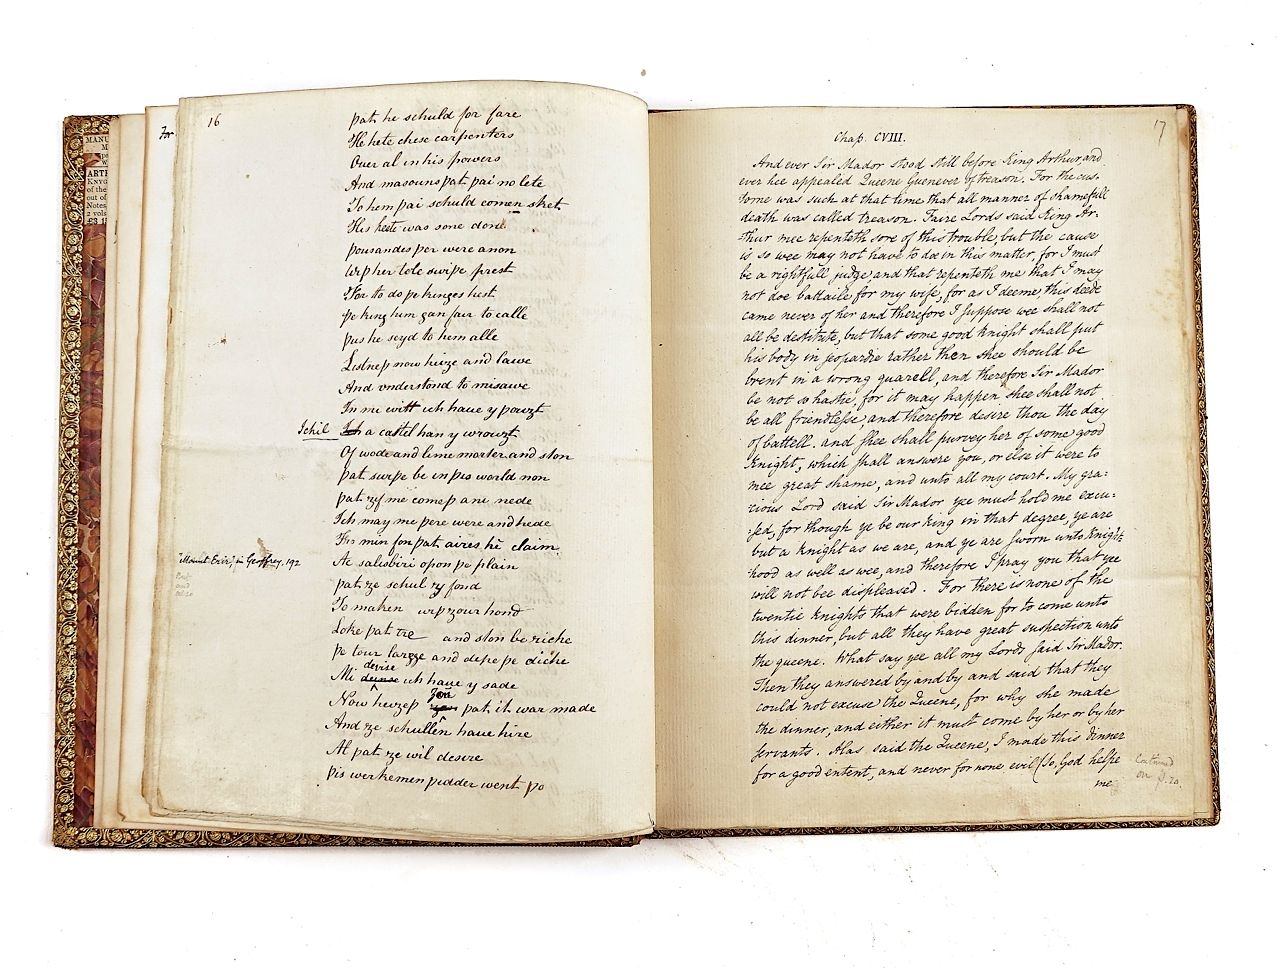 MANU
M
pe
W
ARTH
KNYG
of the
out of
Notes,
2 vols
£3 13
For
16
þat he schuld for fare
He hete chese carpenters
Ouer al in his powers
And masouns þat þai no lete
To hem þai schuld comen sket
His heste was sone don
þousandes þer were anon
Wiþ her tole swiþe prest
For to do þe kinges hest
þe king him gan fair to calle
þus he seyd to hem alle
Listneþ now heize and lawe
And vnderstond to mi sawe
In mi witt ich haue y þouzt
Ichil Ich a castel han y wrouzt
Of wode and lime morter and ston
þat swiþe be in þis world non
þat zif me comeþ ani nede
Ich may me þere were and hede
Fro min fon þat aires hẽ claim
"Mount Erir", in Geoffrey, 192
At salisbiri opon þe plain
þat ze schul zif fond
To maken wiþ zour hond
Loke þat tre and ston be riche
þe tour large and depe þe diche
devise
Mi ich haue y sade
Now heizeþ fon þat it war made
And ze schullen haue hire
Al þat ze wil desire
þis werkemen þidder went þo
17
Chap. CVIII.
And ever Sir Mador stood still before King Arthur, and
ever hee appealed Queene Guenever of treason. For the cus-
tome was such at that time that all manner of shamefull
death was called treason. Faire Lords said King Ar-
thur mee repenteth sore of this trouble, but the cause
is so wee may not have to doe in this matter, for I must
be a rightfull judge, and that repenteth me that I may
not doe battaile for my wife, for as I deeme, this deede
came never of her and therefore I suppose wee shall not
all be destitute, but that some good Knight shall put
his body in jeopardie rather then shee should be
brent in a wrong quarell, and therefore Sir Mador
be not so hastie, for it may happen shee shall not
be all friendlesse, and therefore desire thou the day
of battell. and shee shall purvey her of some good
Knight, which shall answere you, or else it were to
mee great shame, and unto all my court. My gra:
cious Lord said Sir Mador yee must hold me excu:
sed, for though ye be our King in that degree, ye are
but a knight as we are, and ye are sworn unto Knigh:
hood as well as wee, and therefore I pray you that yee
will not bee displeased. For there is none of the
twentie Knights that were bidden for to come unto
this dinner, but all they have great suspection unto
the queene. What say yee all my Lords said Sir Mador.
Then they answered by and by and said that they
could not excuse the Queene, for why she made
the dinner, and either it must come by her or by her
servants. Alas said the Queene, I made this dinner
for a good entent, and never for none evil (So, God helpe
me
Continued
on p. 20.